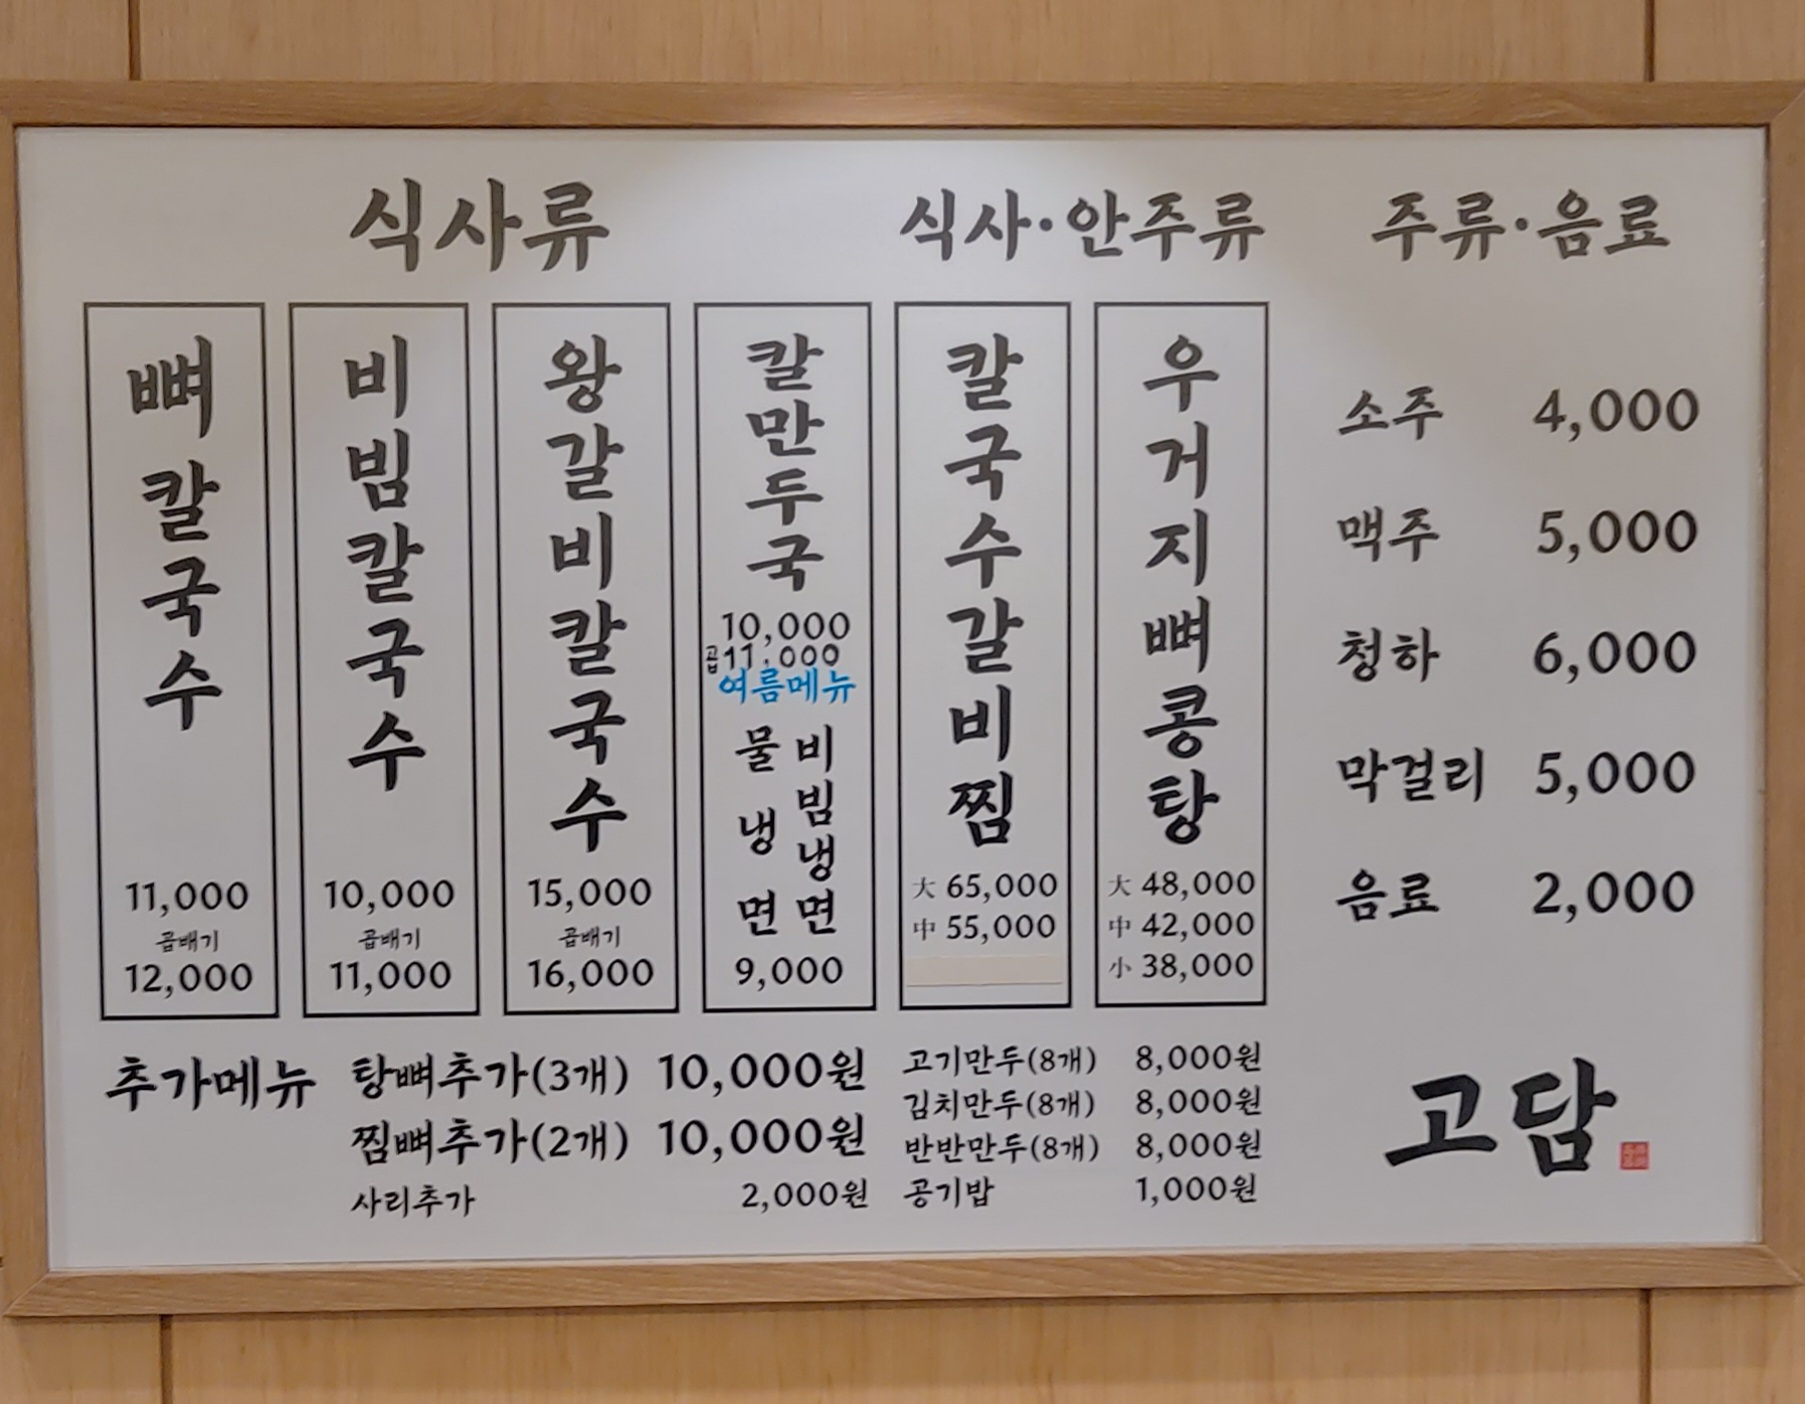 식사류
뼈칼국수
11,000
곱배기
12,000
비빔칼국수
10,000
곱배기
11,000
왕갈비칼국수
15,000
곱배기
16,000
칼만두국
10,000
곱 11,000
여름메뉴
물냉면
비빔냉면
9,000
식사·안주류
칼국수갈비찜
大 65,000
中 55,000
우거지뼈콩탕
大 48,000
中 42,000
小 38,000
주류·음료
소주 4,000
맥주 5,000
청하 6,000
막걸리 5,000
음료 2,000
추가메뉴
탕뼈추가(3개) 10,000원
찜뼈추가(2개) 10,000원
사리추가 2,000원
고기만두(8개) 8,000원
김치만두(8개) 8,000원
반반만두(8개) 8,000원
공기밥 1,000원
고담